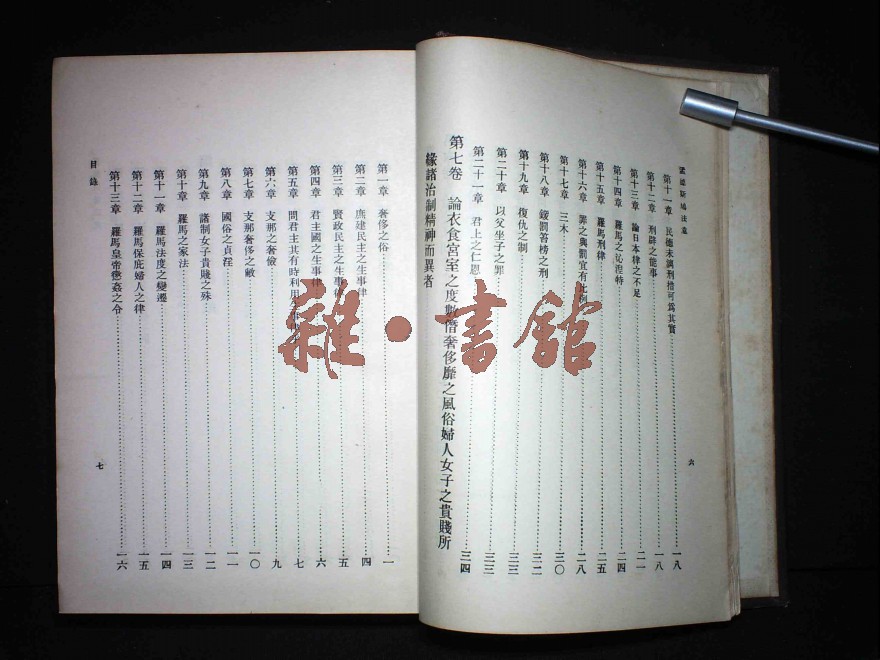 孟德斯鳩法意
第十一章 民德未漓刑措可爲其實 一八
第十二章 刑辟之能事 一八
第十三章 論日本律之不足 二一
第十四章 羅馬之沁涅特 二四
第十五章 羅馬刑律 二五
第十六章 罪之與罰宜有比例 二八
第十七章 三木 三〇
第十八章 鍰罰笞榜之刑 三二
第十九章 復仇之制 三三
第二十章 以父坐子之罪 三三
第二十一章 君上之仁恩 三四
第七卷 論衣食宮室之度數僭奢侈靡之風俗婦人女子之貴賤所
緣諸治制精神而異者
六
第一章 奢侈之俗 一
第二章 庶建民主之生事律 四
第三章 賢政民主之生事 五
第四章 君主國之生事律 六
第五章 問君主其有時利用 七
第六章 支那之奢儉 九
第七章 支那奢侈之敝 一〇
第八章 國俗之貞淫 一一
第九章 諸制女子貴賤之殊 一二
第十章 羅馬之家法 一三
第十一章 羅馬法度之變遷 一四
第十二章 羅馬保庇婦人之律 一五
第十三章 羅馬皇帝懲姦之令 一六
目錄
七
雜·書館